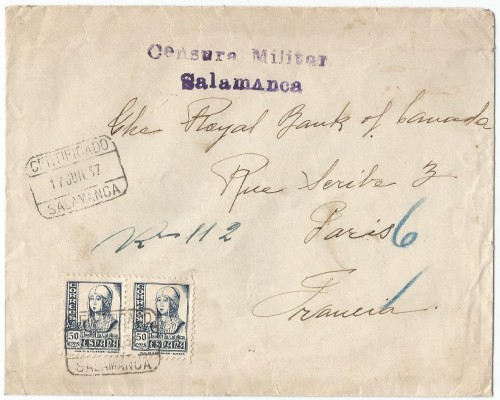 Censura Militar
Salamanca
CERTIFICADO
17 JUN. 37
SALAMANCA
The Royal Bank of Canada
Rue Scribe 3
Paris 6
Francia
112
50 50
ESPAÑA ESPAÑA
SALAMANCA